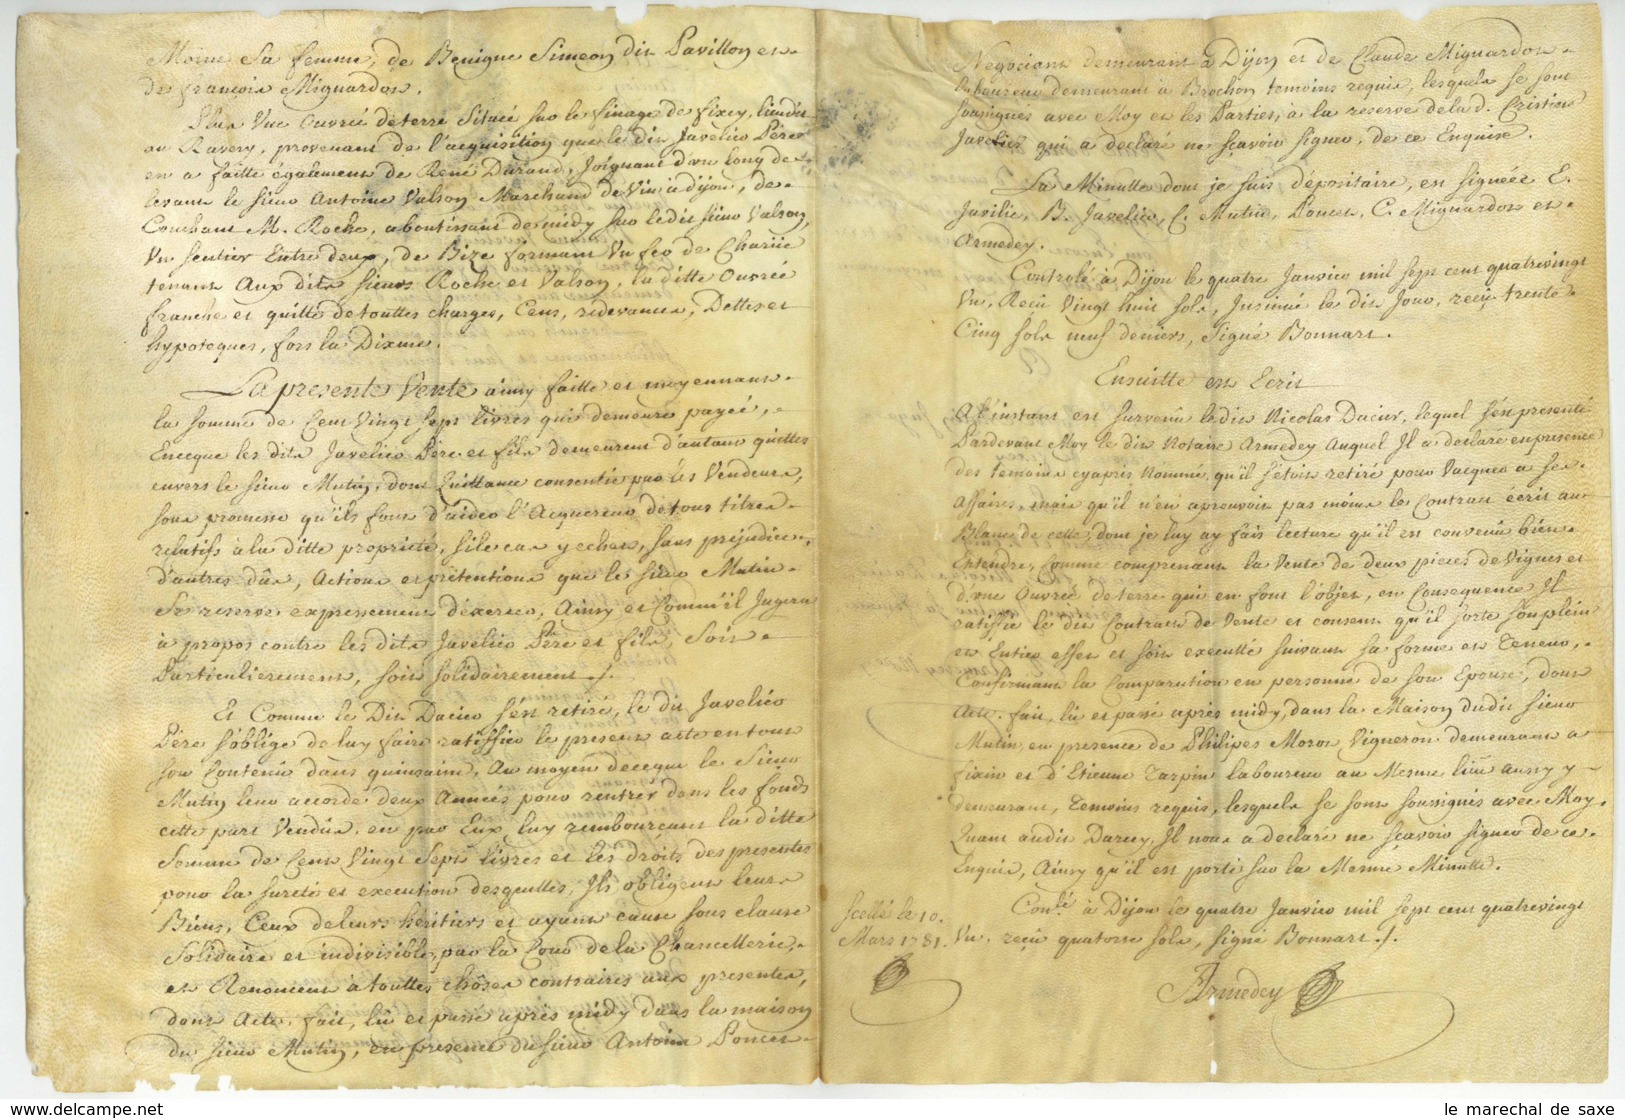 Moine sa femme, de Benigne Simeon dit Pavillon et
de françois Mignardot.
Plus Une Ouvrée de terre Située sur le finage de fixey, lieudit
au Ravery, provenant de l'acquisition que le dit Javelier Pere
en a faitte également de René Durand, Joignant d'un long de
levant le sieur Antoine Valson Marchand de Vin à dijon, de
Couchant M. Roche, aboutissant de midy sur ledit sieur Valson,
Un sentier Entre deux, de Bize formant Un fer de Charüe
tenant Aux dits sieurs Roche et Valson, la ditte Ouvrée
franche et quitte de touttes charges, Cens, rédevances, Dettes et
hypoteques, fors la Dixme.
La présente Vente ainsy faitte et moyennant
la somme de Cent Vingt Sept livres qui demeure payée,
Encequé les dits Javelier Pere et fils demeurent d'autant quittes
envers le sieur Mutin, dont Quittance consentie par les Vendeurs,
sous promesse qu'ils font d'aider l'Acquereur de tous titres
relatifs à la ditte propriété, si le cas y echet, sans préjudice
d'autres dûs, Actions et prétentions que le sieur Mutin
Se reserve expressement d'éxercer, Ainsy et Comm'il Jugera
à propos contre les dits Javelier Pere et fils, Soit
Particulierement, soit solidairement ./.
Et Comme le Dit Dacier s'est retiré, le dit Javelier
Pere s'oblige de luy faire ratiffier le present acte en tout
son Contenu dans quinzaine, Au moyen decequé le Sieur
Mutin leur accorde deux Années pour rentrer dans les fonds
cette part Vendus, en par Eux luy remboursant la ditte
Somme de Cent Vingt Sept livres et les droits des presentes
pour la sureté et execution desquelles, Ils obligent leurs
Biens, Ceux de leurs héritiers et ayans cause sous clause
Solidaire et indivisible, par la Cour de la Chancellerie,
et Renoncent à touttes chôses contraires aux presentes,
dont Acte, fait, lû et passé après midy dans la maison
du sieur Mutin, en presence du sieur Antoine Poncet
Negociant demeurant à Dijon et de Claude Mignardot
laboureur demeurant à Brochon temoins requis, lesquels se sont
soussignés avec Moy et les Parties, à la reserve dela d. Cristine
Javelier qui a declaré ne sçavoir signer, de ce Enquise.
La Minutte dont je suis dépositaire, est signée E.
Javilie, B. Javelier, C. Mutin, Poncet, C. Mignardot et
Armedey.
Controlé à Dijon le quatre Janvier mil sept cent quatrevingt
Un, Reçu Vingt huit sols, Insinué le dit Jour, reçu trente
Cinq sols neuf deniers, Signé Bonnart.
Ensuitte est Ecrit
A l'instant est survenû ledit Nicolas Dacier, lequel s'est presenté
Pardevant Moy le dit Notaire Armedey Auquel Il a declaré en presence
des temoins cyaprès Nommé, qu'il s'étoit retiré pour Vacquer à ses
Affaires, mais qu'il n'en aprouvoit pas moins le Contrat écrit au
Blanc de cette, dont je luy ay fait lecture qu'il est convenu bien
Entendre, Comme comprenant la Vente de deux pieces de Vignes et
d'une Ouvrée de terre qui en font l'objet, en Consequence Il
ratiffie le dit Contrat de Vente et consent qu'il sorte son plein
et Entier effet et soit executté suivant sa forme et Teneur,
Confirmant la Comparution en personne de son Epouse, dont
Acte, fait, lû et passé après midy, dans la Maison dudit sieur
Mutin, en presence de Philipes Morot Vigneron demeurant à
fixin et d'Etienne Tarpin laboureur au Mesme lieu aussy y
demeurant, Temoins requis, lesquels se sont soussignés avec Moy.
Quant audit Darcey, Il nous a declaré ne sçavoir signer de ce
Enquis, Ainsy qu'il est porté sur la Mesme Minutte.
Conlé à Dijon le quatre Janvier mil sept cent quatrevingt
Un, reçu quatorse sols, signé Bonnart ./.
Scellé le 10
Mars 1781.
Armedey
le marechal de saxe